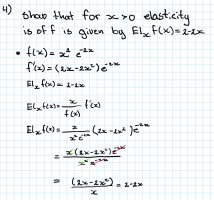 4) Show that for x>0 elasticity
is of f is given by Elₓ f(x) = 2-2x
• f(x) = x² e⁻²ˣ
f'(x) = (2x-2x²) e⁻²ˣ
Elₓ f(x) = 2-2x
Elₓ f(x) = x/f(x) f'(x)
Elₓ f(x) = x/(x² e⁻²ˣ) (2x-2x²) e⁻²ˣ
= x(2x-2x²)e⁻²ˣ/(x² e⁻²ˣ)
= (2x-2x²)/x = 2-2x